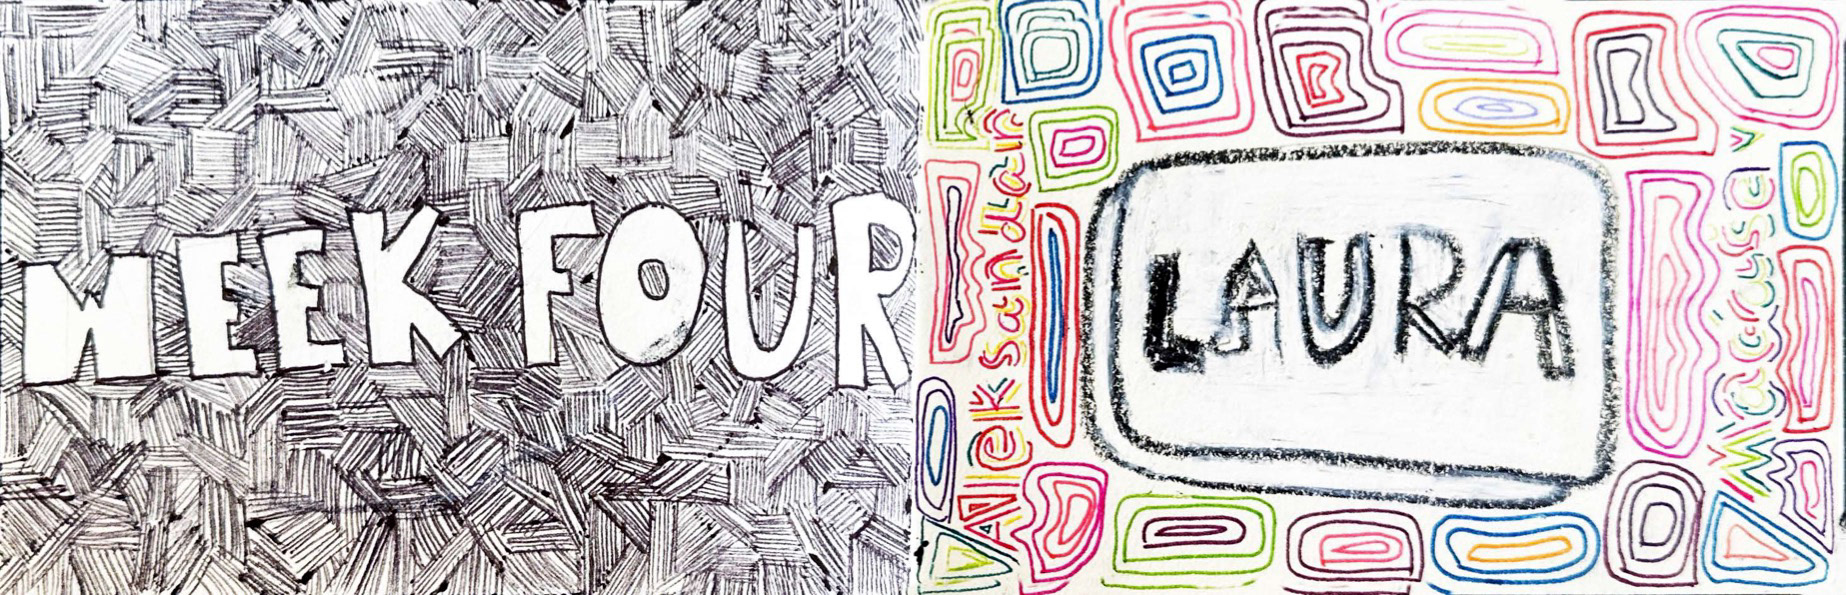 WEEK FOUR
Aleksandar
LAURA